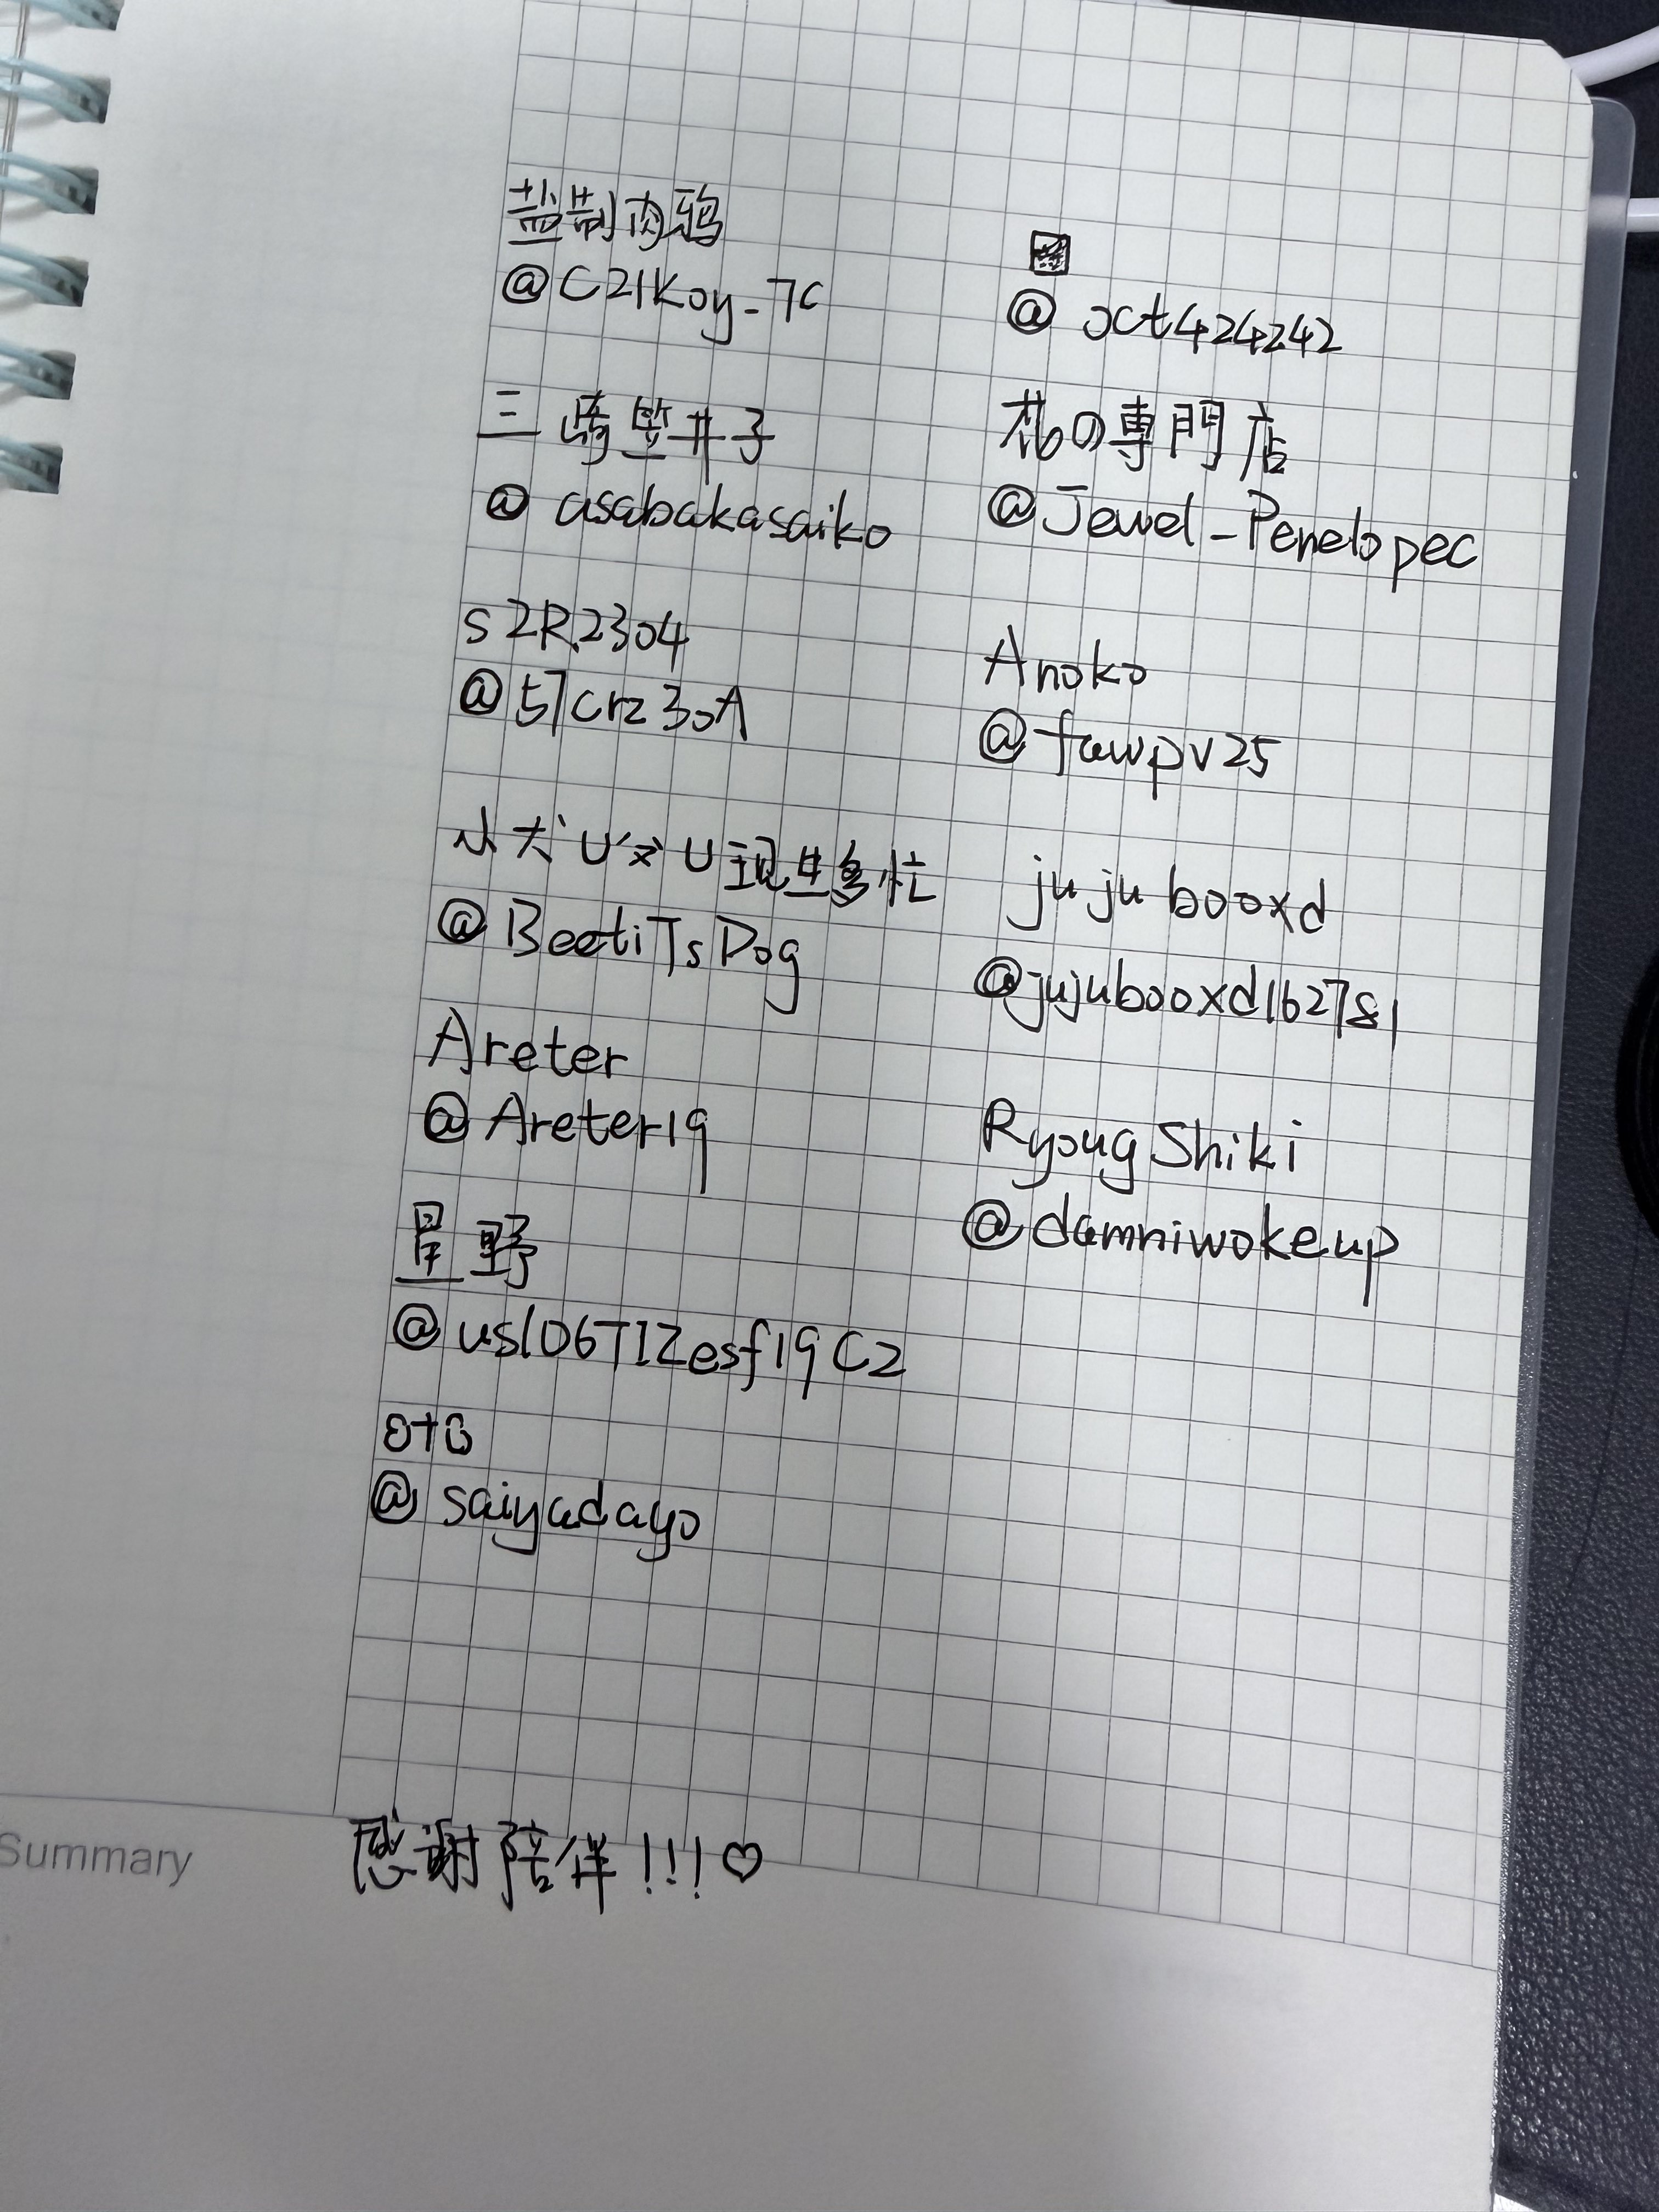 盐制肉鸦
@C21Koy_7C
三崎竖井子
@asabakasaiko
S2R2304
@57crz30A
小犬U´ꓫ`U现生多忙
@BeetiTsDog
Areter
@Areter19
星野
@usl06T1Zesf19C2
oto
@saiyadayo
@oct424242
花の専門店
@Jewel_Penelopec
Anoko
@fawpv25
jujubooxd
@jujubooxd162781
RyougShiki
@damniwokeup
Summary
感谢陪伴!!!♡